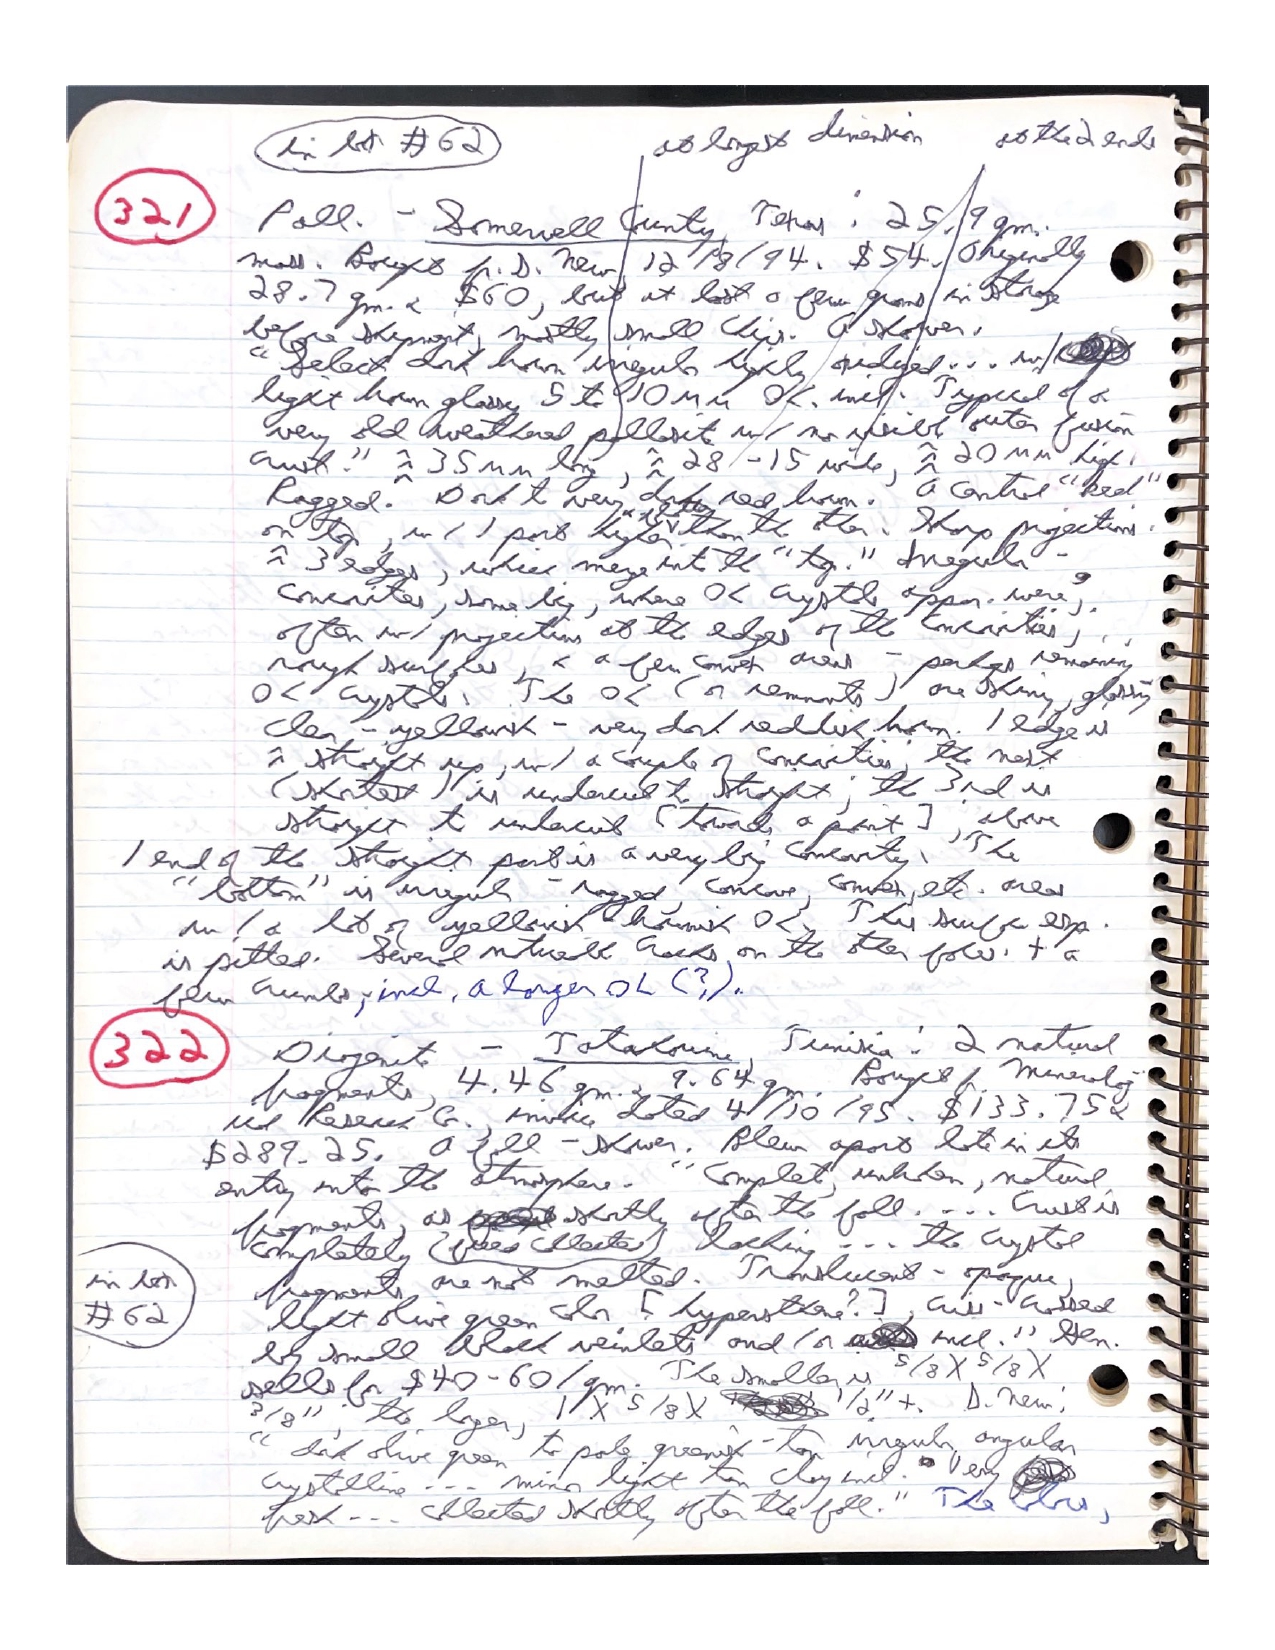 in lot #62
at longest dimension
at the 2 ends
321
Pall. - Somervell County, Texas: 25.9 gm.
mass. Bought f. D. New, 12/8/94. $54. Originally
28.7 gm. & $60, but it lost a few grams in storage
before shipment, mostly small chips. A shower.
"Select dark brown irregular highly ridged... w/
light brown glassy 5 to 10 mm Ol. incl. Typical of a
very old weathered pallasite w/ no visible outer fusion
crust." ≈ 35 mm long, ≈ 28-15 wide, ≈ 20 mm high.
Ragged. Dark to very dark red brown. A central "keel"
on top, w/ 1 part higher than the other. Sharp projections.
≈ 3 edges, which merge into the "top." Irregular -
concavities, some big, where Ol crystals appar. were,
often w/ projections at the edges of the concavities,
rough surfaces, & a few convex areas - perhaps remaining
Ol crystals. The Ol (or remnants) are shiny, glassy
clear - yellowish - very dark reddish brown. 1 edge is
≈ straight up, w/ a couple of concavities; the next
(shortest) is undercut to straight; the 3rd is
straight to undercut [towards a point], above
1 end of the straight part is a very big concavity. The
"bottom" is irregular - ragged, concave, convex, etc. areas
w/ a lot of yellowish brownish Ol. This surface esp.
is pitted. Several natural cracks on the other faces. + a
few crumbs, incl. a longer Ol (?).
322
Diogenite - Tatahouine, Tunisia: 2 natural
fragments, 4.46 gm. & 9.64 gm. Bought f. Mineralog-
ical Research Co., invoice dated 4/10/95. $133.75 &
$289.25. A fall - shower. Blew apart late in its
entry into the atmosphere. "Complete, unbroken, natural
fragments, as shortly after the fall.... Crust is
completely (were collected) lacking... the crystal
fragments are not melted. Translucent - opaque,
light olive green color [hypersthene?], criss-crossed
by small black veinlets and/or incl." Gen.
sells for $40-60/gm. The smaller is 5/8 X 5/8 X
3/8", the larger, 1 X 5/8 X 1/2"+. D. New:
"dark olive green to pale greenish-tan irregular, angular
crystalline... minor light tan clay incl. Very
fresh... collected shortly after the fall." The colors,
in lot
#62